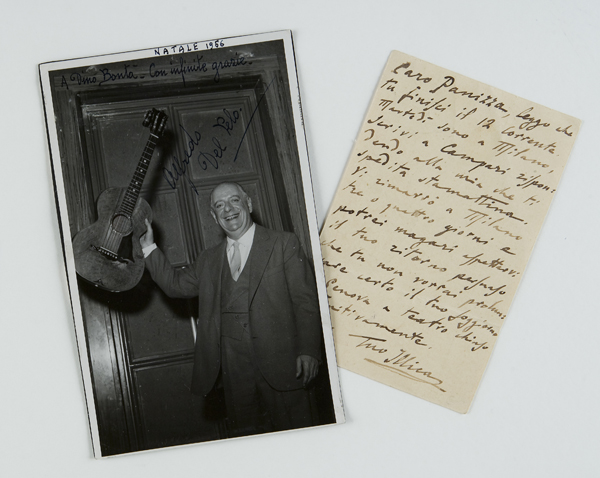 NATALE 1956
A Dino Bontà - Con infinite grazie -
Alfredo
Del Pelo.
Caro Panizza, leggo che
tu finisci il 12 corrente
Martedì sono a Milano,
scrivi a Campari rispon
dendo alla mia che ti
spedita stamattina.
Vi rimarrò a Milano
tre o quattro giorni e
potrei magari aspettarvi
il tuo ritorno
che tu non vorrai
certo il tuo soggiorno
Genova a teatro chiuso
Tuo Illica